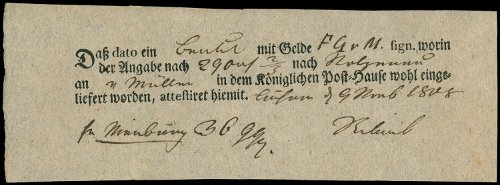 Daß dato ein Beutel mit Gelde F G v M. sign. worin
der Angabe nach 290 nach
an v Müller in dem Königlichen Post-Hause wohl einge-
liefert worden, attestiret hiemit. 9 Novb 1808
fr Nienburg 36